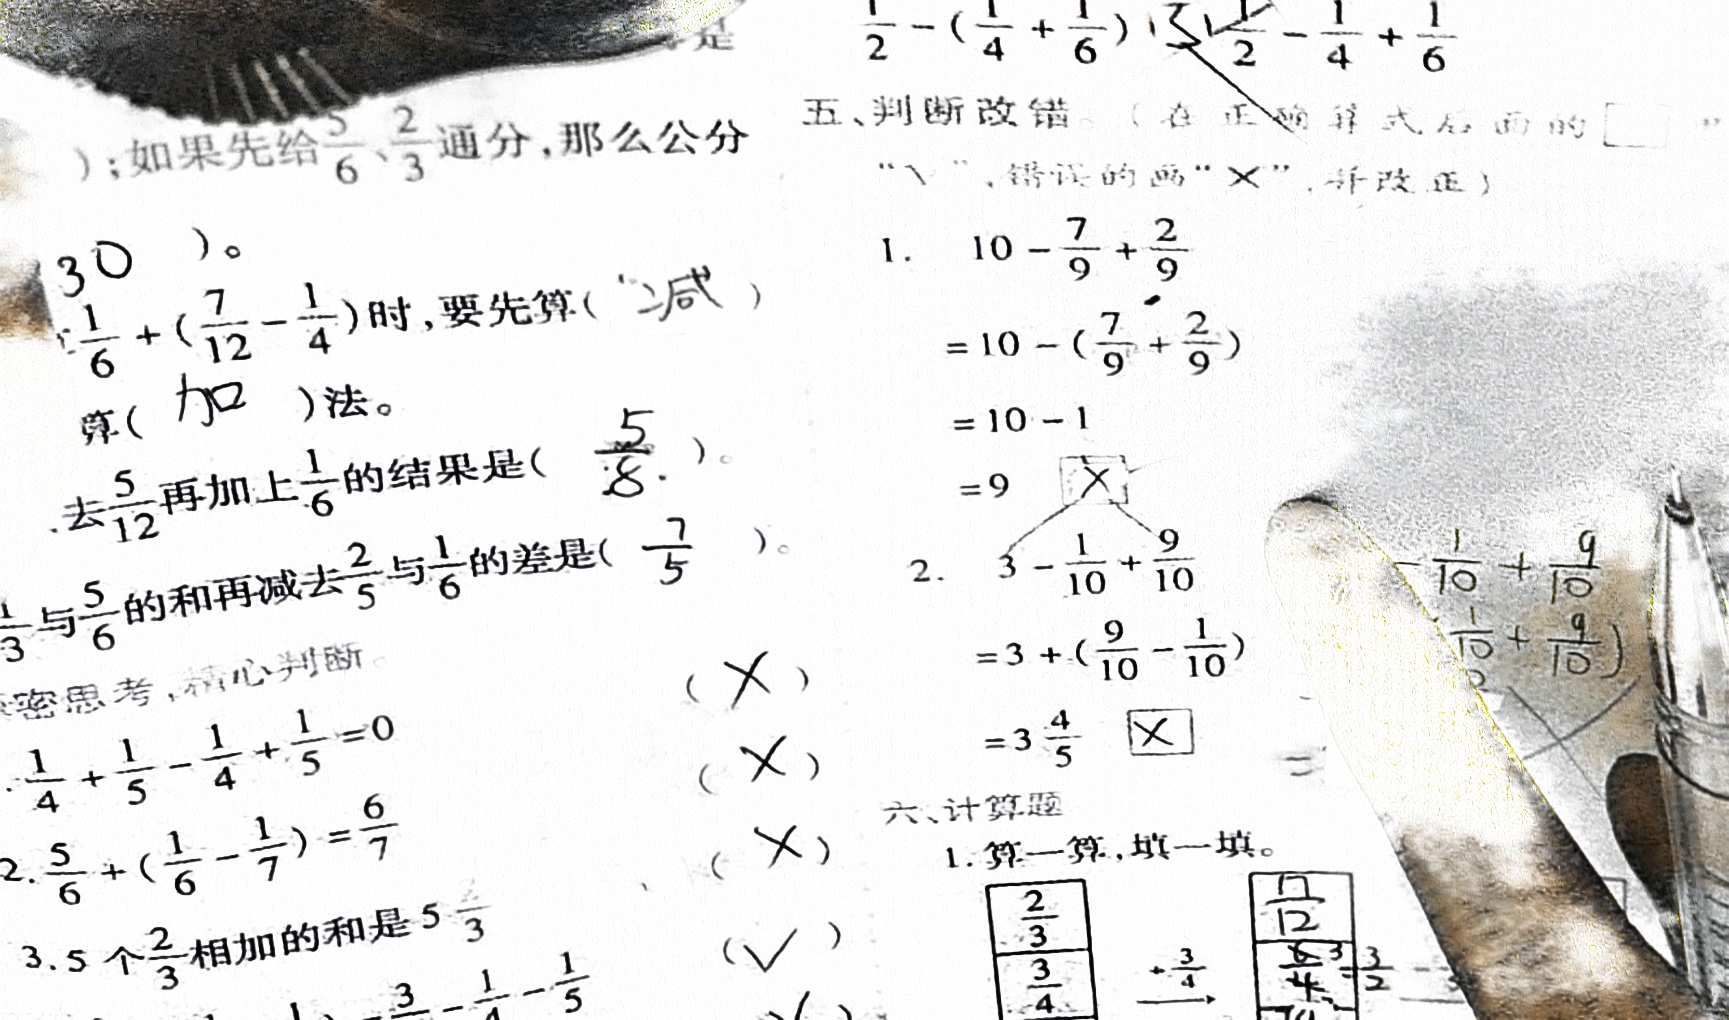 是
);如果先给5/6、2/3通分,那么公分
30 )。
1/6+(7/12-1/4)时,要先算( 减 )
算( 加 )法。
去5/12再加上1/6的结果是( 5/8 )。
1/3与5/6的和再减去2/5与1/6的差是( 7/5 )。
密思考,精心判断。
1/4+1/5-1/4+1/5=0 (×)
(×)
2.5/6+(1/6-1/7)=6/7 (×)
3.5个2/3相加的和是5 2/3 (√)
3/4-1/4-1/5
1/2-(1/4+1/6) 1/2-1/4+1/6
五、判断改错。(在正确算式后面的□
“√”,错误的画“×”,并改正)
1. 10-7/9+2/9
=10-(7/9+2/9)
=10-1
=9 ×
2. 3-1/10+9/10
=3+(9/10-1/10)
=3 4/5 ×
-1/10+9/10
1/10+9/10)
=
六、计算题
1.算一算,填一填。
2/3 17/12
3/4 +3/4 6/4 3 =3/2